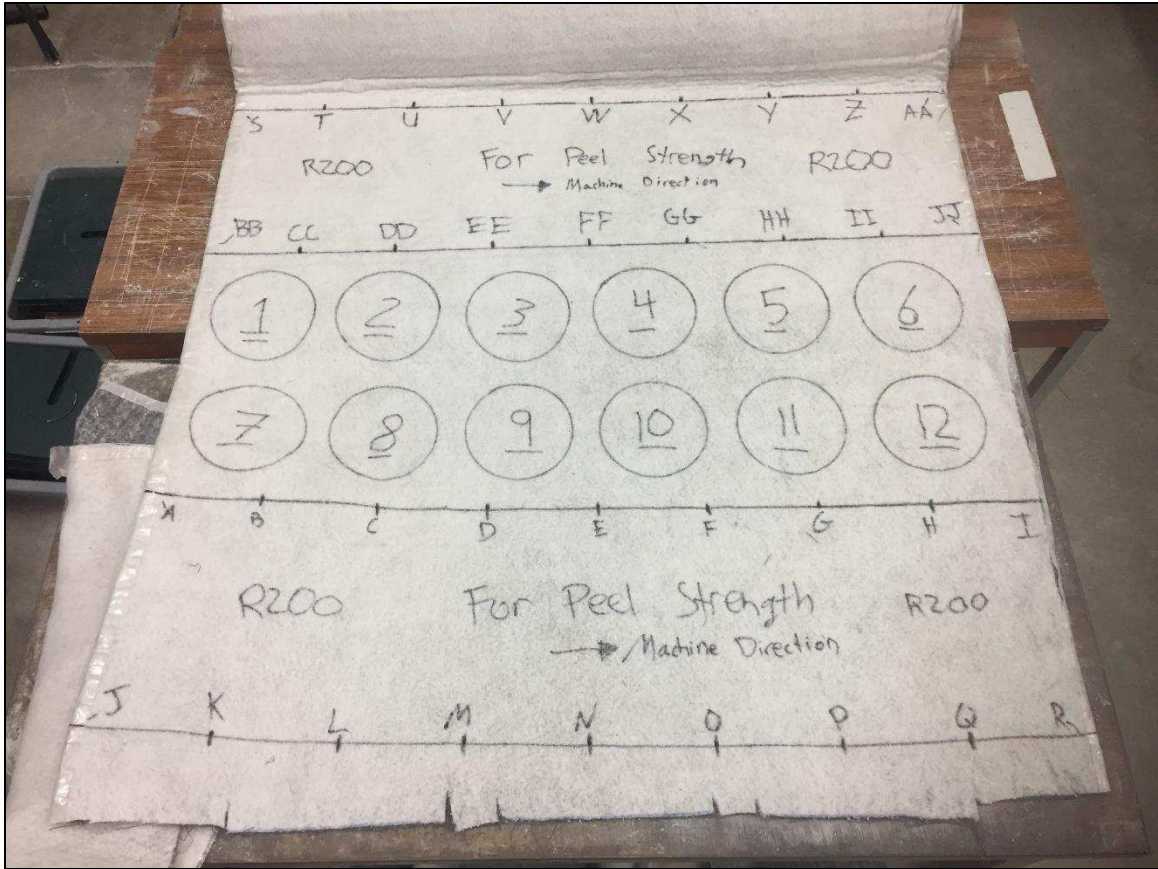 S T U V W X Y Z AA
R200 For Peel Strength R200
→ Machine Direction
BB CC DD EE FF GG HH II JJ
1 2 3 4 5 6
7 8 9 10 11 12
A B C D E F G H I
R200 For Peel Strength R200
→ Machine Direction
J K L M N O P Q R